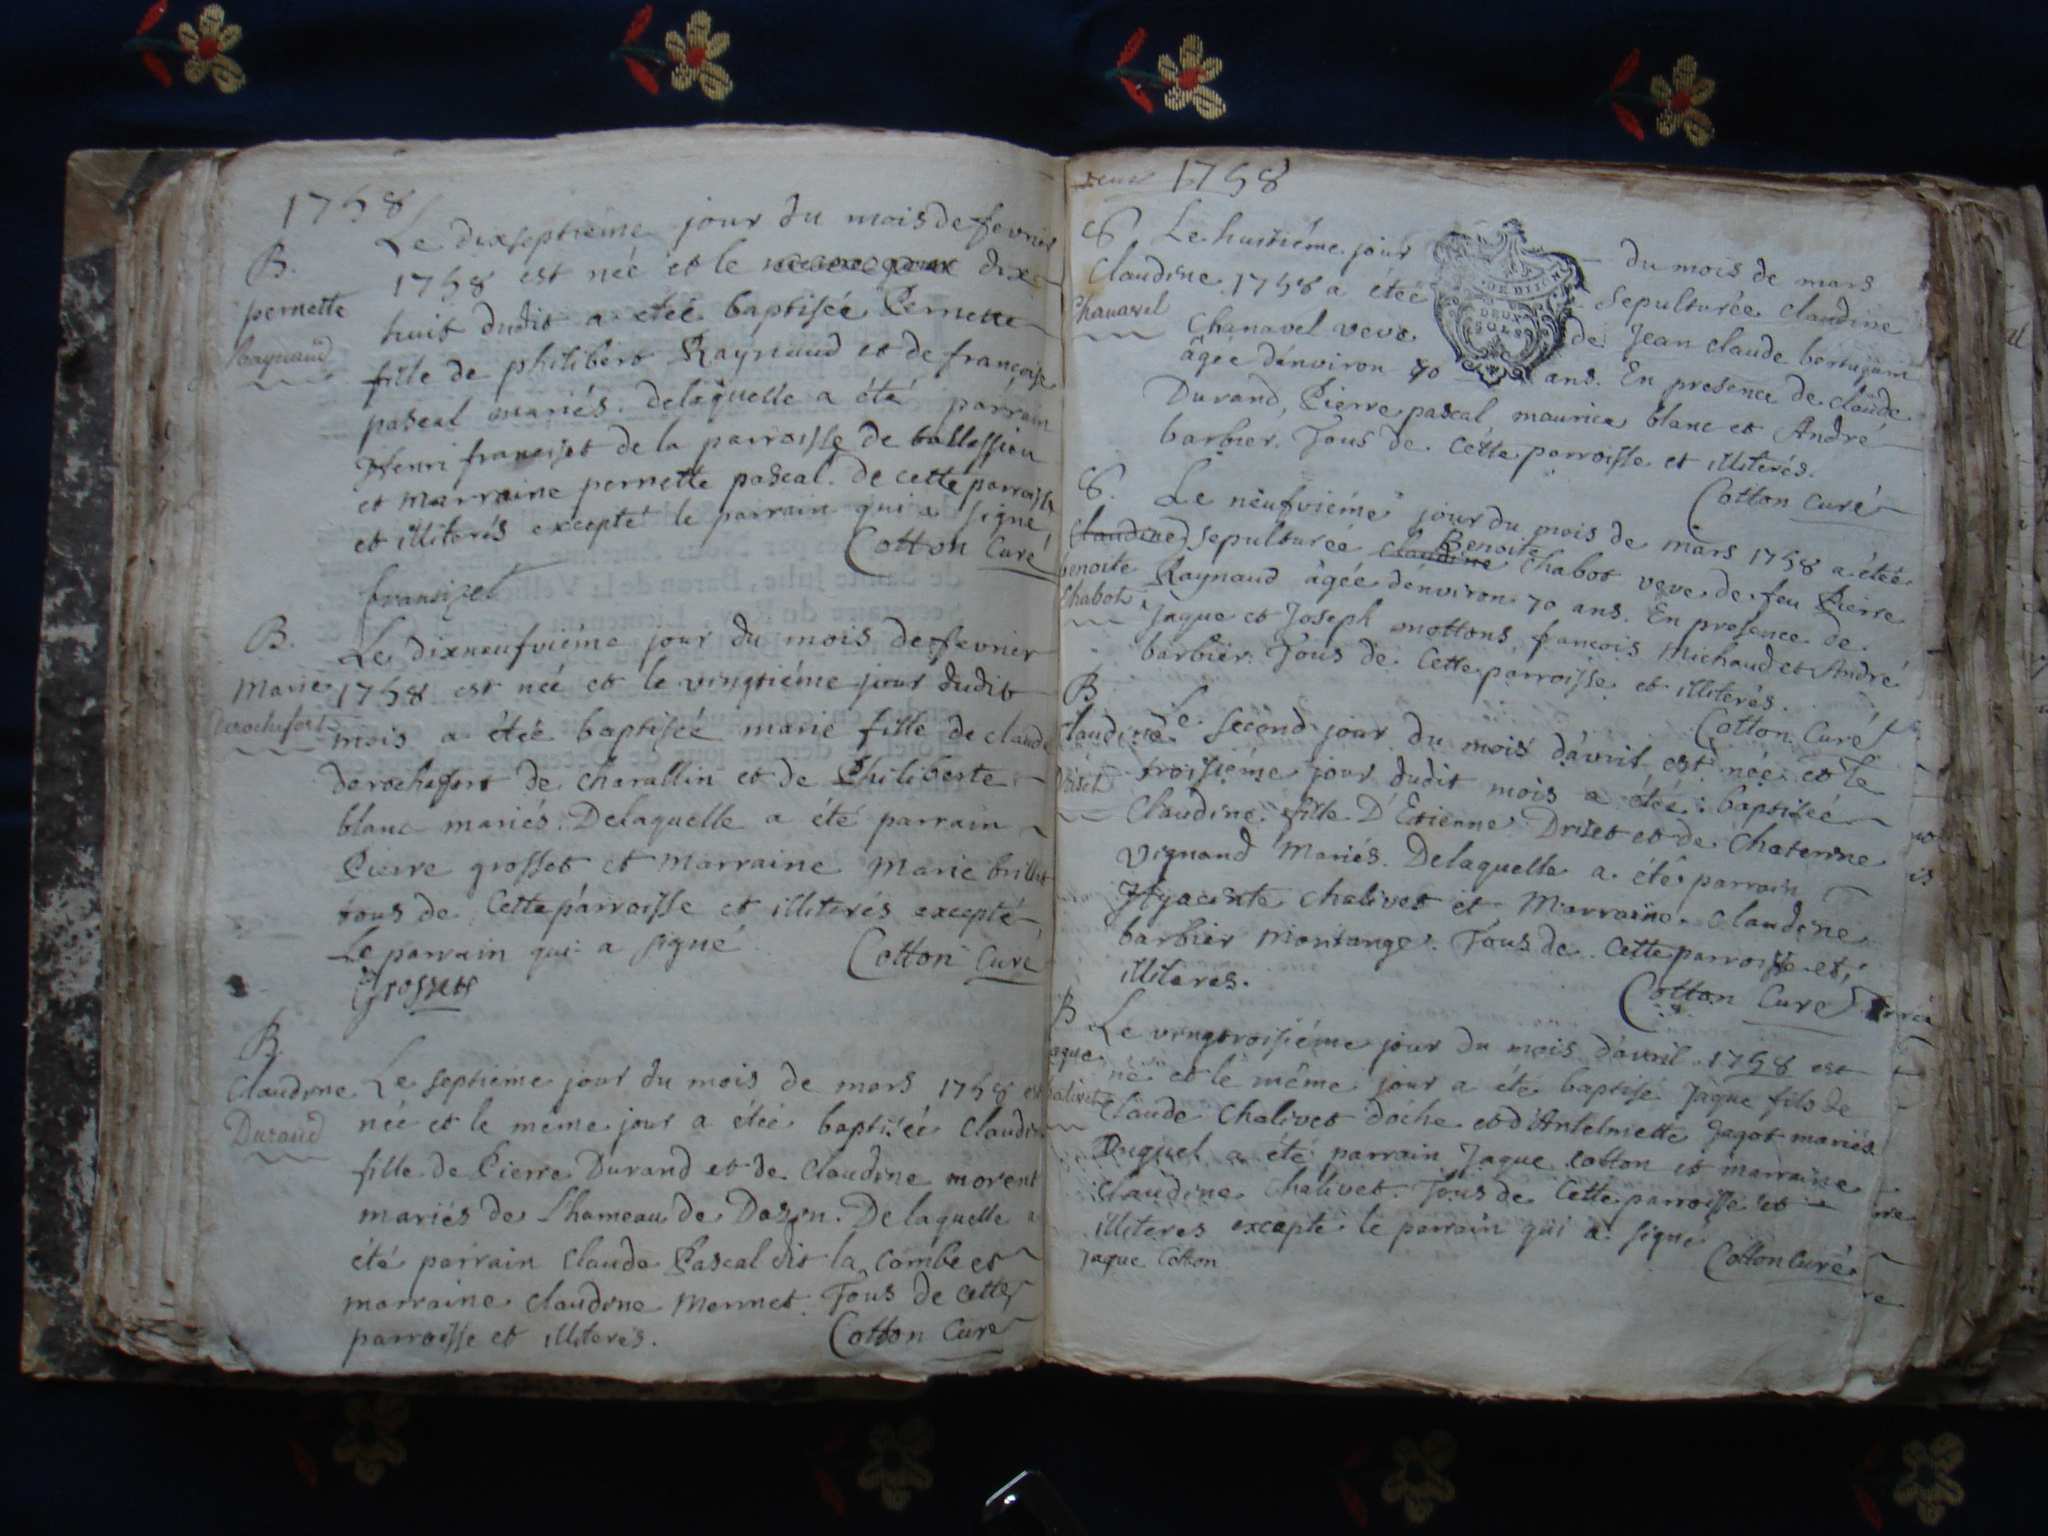 1758
B.
pernette
Raynaud
Le dixseptiéme jour du mois de fevrier
1758 est née et le dix
huit dudit a etéé baptisée Pernette
fille de philibert Raynaud et de françoise
pascal mariés. delaquelle a été parrain
Henri francizet de la parroisse de
et marraine pernette pascal. de cette parroisse
et illiterés excepté le parrain qui a signé
Cotton Curé
francizet
B.
Marie
derochefort
Le dixneufviéme jour du mois de fevrier
1758 est née et le vingtiéme jour dudit
mois a étéé baptisée marie fille de claude
derochefort de charallin et de Philiberte
blanc mariés. Delaquelle a été parrain
Pierre grosset et marraine Marie brillat
tous de Cette parroisse et illiterés excepté
Le parrain qui a signé
Cotton Curé
Grosset
B.
Claudine
Durand
Le septiéme jour du mois de mars 1758 est
née et le méme jour a étéé baptisée Claudine
fille de Pierre Durand et de Claudine morent
mariés de L'hameau de Dazin. De laquelle a
été parrain Claude Pascal dit la Combe et
marraine Claudine Mermet. Tous de cette
parroisse et illiterés.
Cotton Curé
deux 1758
S.
Claudine
Chanavel
DEUX
SOLS
Le huitiéme jour du mois de mars
1758 a étéé sepulturée claudine
Chanavel veve de Jean claude
âgée d'énviron 70 ans. En presence de claude
Durand, Pierre pascal maurice blanc et André
barbier. Tous de Cette parroisse et illiterés.
Cotton Curé
S.
Claudine
benoite
Chabot
Le neufviémé jour du mois de mars 1758 a étéé
Benoite
sepulturée Claudine Chabot veve de feu Pierre
Raynaud âgée d'énviron 70 ans. En presence de
Jaque et Joseph mottons, françois Michaud et André
barbier. Tous de Cette parroisse et illiterés.
Cotton Curé
B
Claudine
Driset
Le second jour du mois d'avril est née et le
troisiéme jour dudit mois a étéé baptisée
Claudine fille D'Etienne Driset et de Chaterine
Vignand Mariés. Delaquelle a été parrain
Hyacinte Chalivet et Marraine Claudine
barbier montange. Tous de Cette parroisse et
illiteres.
Cotton Curé
B
Jaque
Chalivet
Le vingtroisiéme jour du mois d'avril 1758 est
né et le même jour a été baptisé Jaque fils de
Claude Chalivet d'oche et d'Antelmette Jagot mariés
Duquel a été parrain Jaque Cotton et marraine
Claudine Chalivet. Tous de Cette parroisse et
illiteres excepté le parrain qui a signé
Jaque Cotton
Cotton Curé